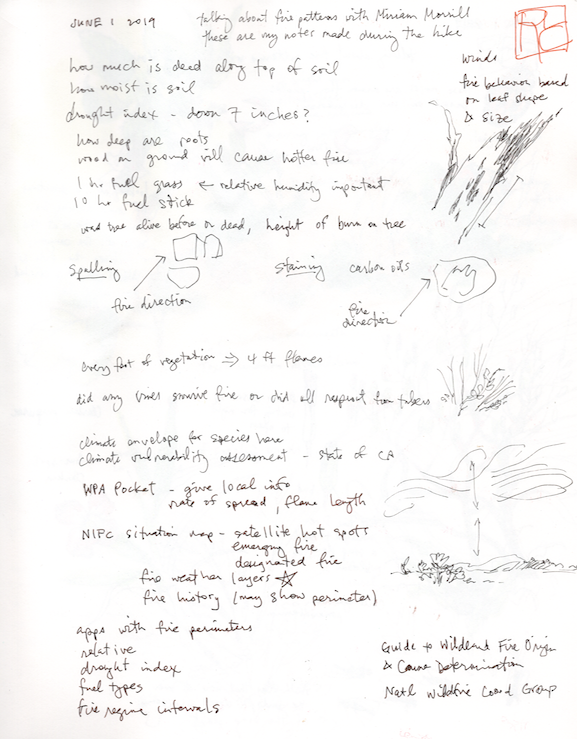 JUNE 1 2019
talking about fire patterns with Miriam Morrill
these are my notes made during the hike
how much is dead along top of soil
how moist is soil
drought index - down 7 inches?
how deep are roots
wood on ground will cause hotter fire
1 hr fuel grass ← relative humidity important
10 hr fuel stick
was tree alive before or dead, height of burn on tree
winds
fire behavior based
on leaf shape
& size
Spalling
fire direction
Staining carbon oils
fire
direction
every foot of vegetation ⇒ 4 ft flames
did any vines survive fire or did all resprout from tubers
climate envelope for species here
climate vulnerability assessment - state of CA
WPA Pocket - give local info
rate of spread, flame length
NIFC situation map - satellite hot spots
emerging fire
designated fire
fire weather layers ☆
fire history (may show perimeter)
apps with fire perimeters
relative
drought index
fuel types
fire regime intervals
Guide to Wildland Fire Origin
& Cause Determination
Natl Wildfire Coord Group